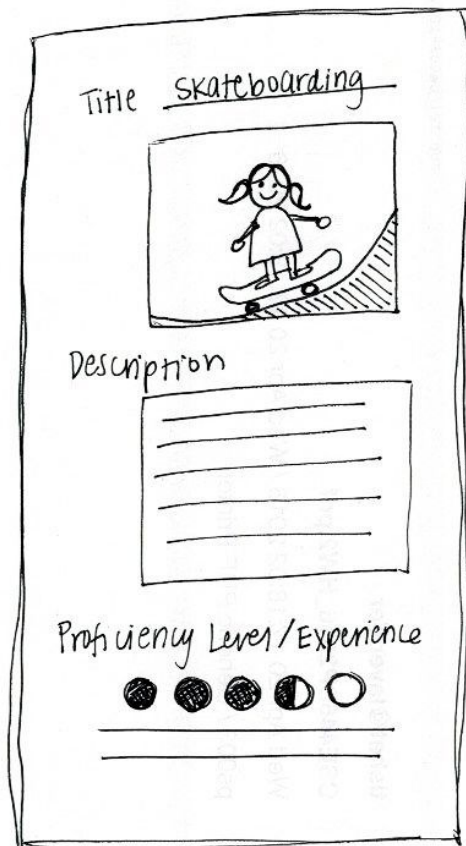 Title Skateboarding
Description
Proficiency Level/Experience